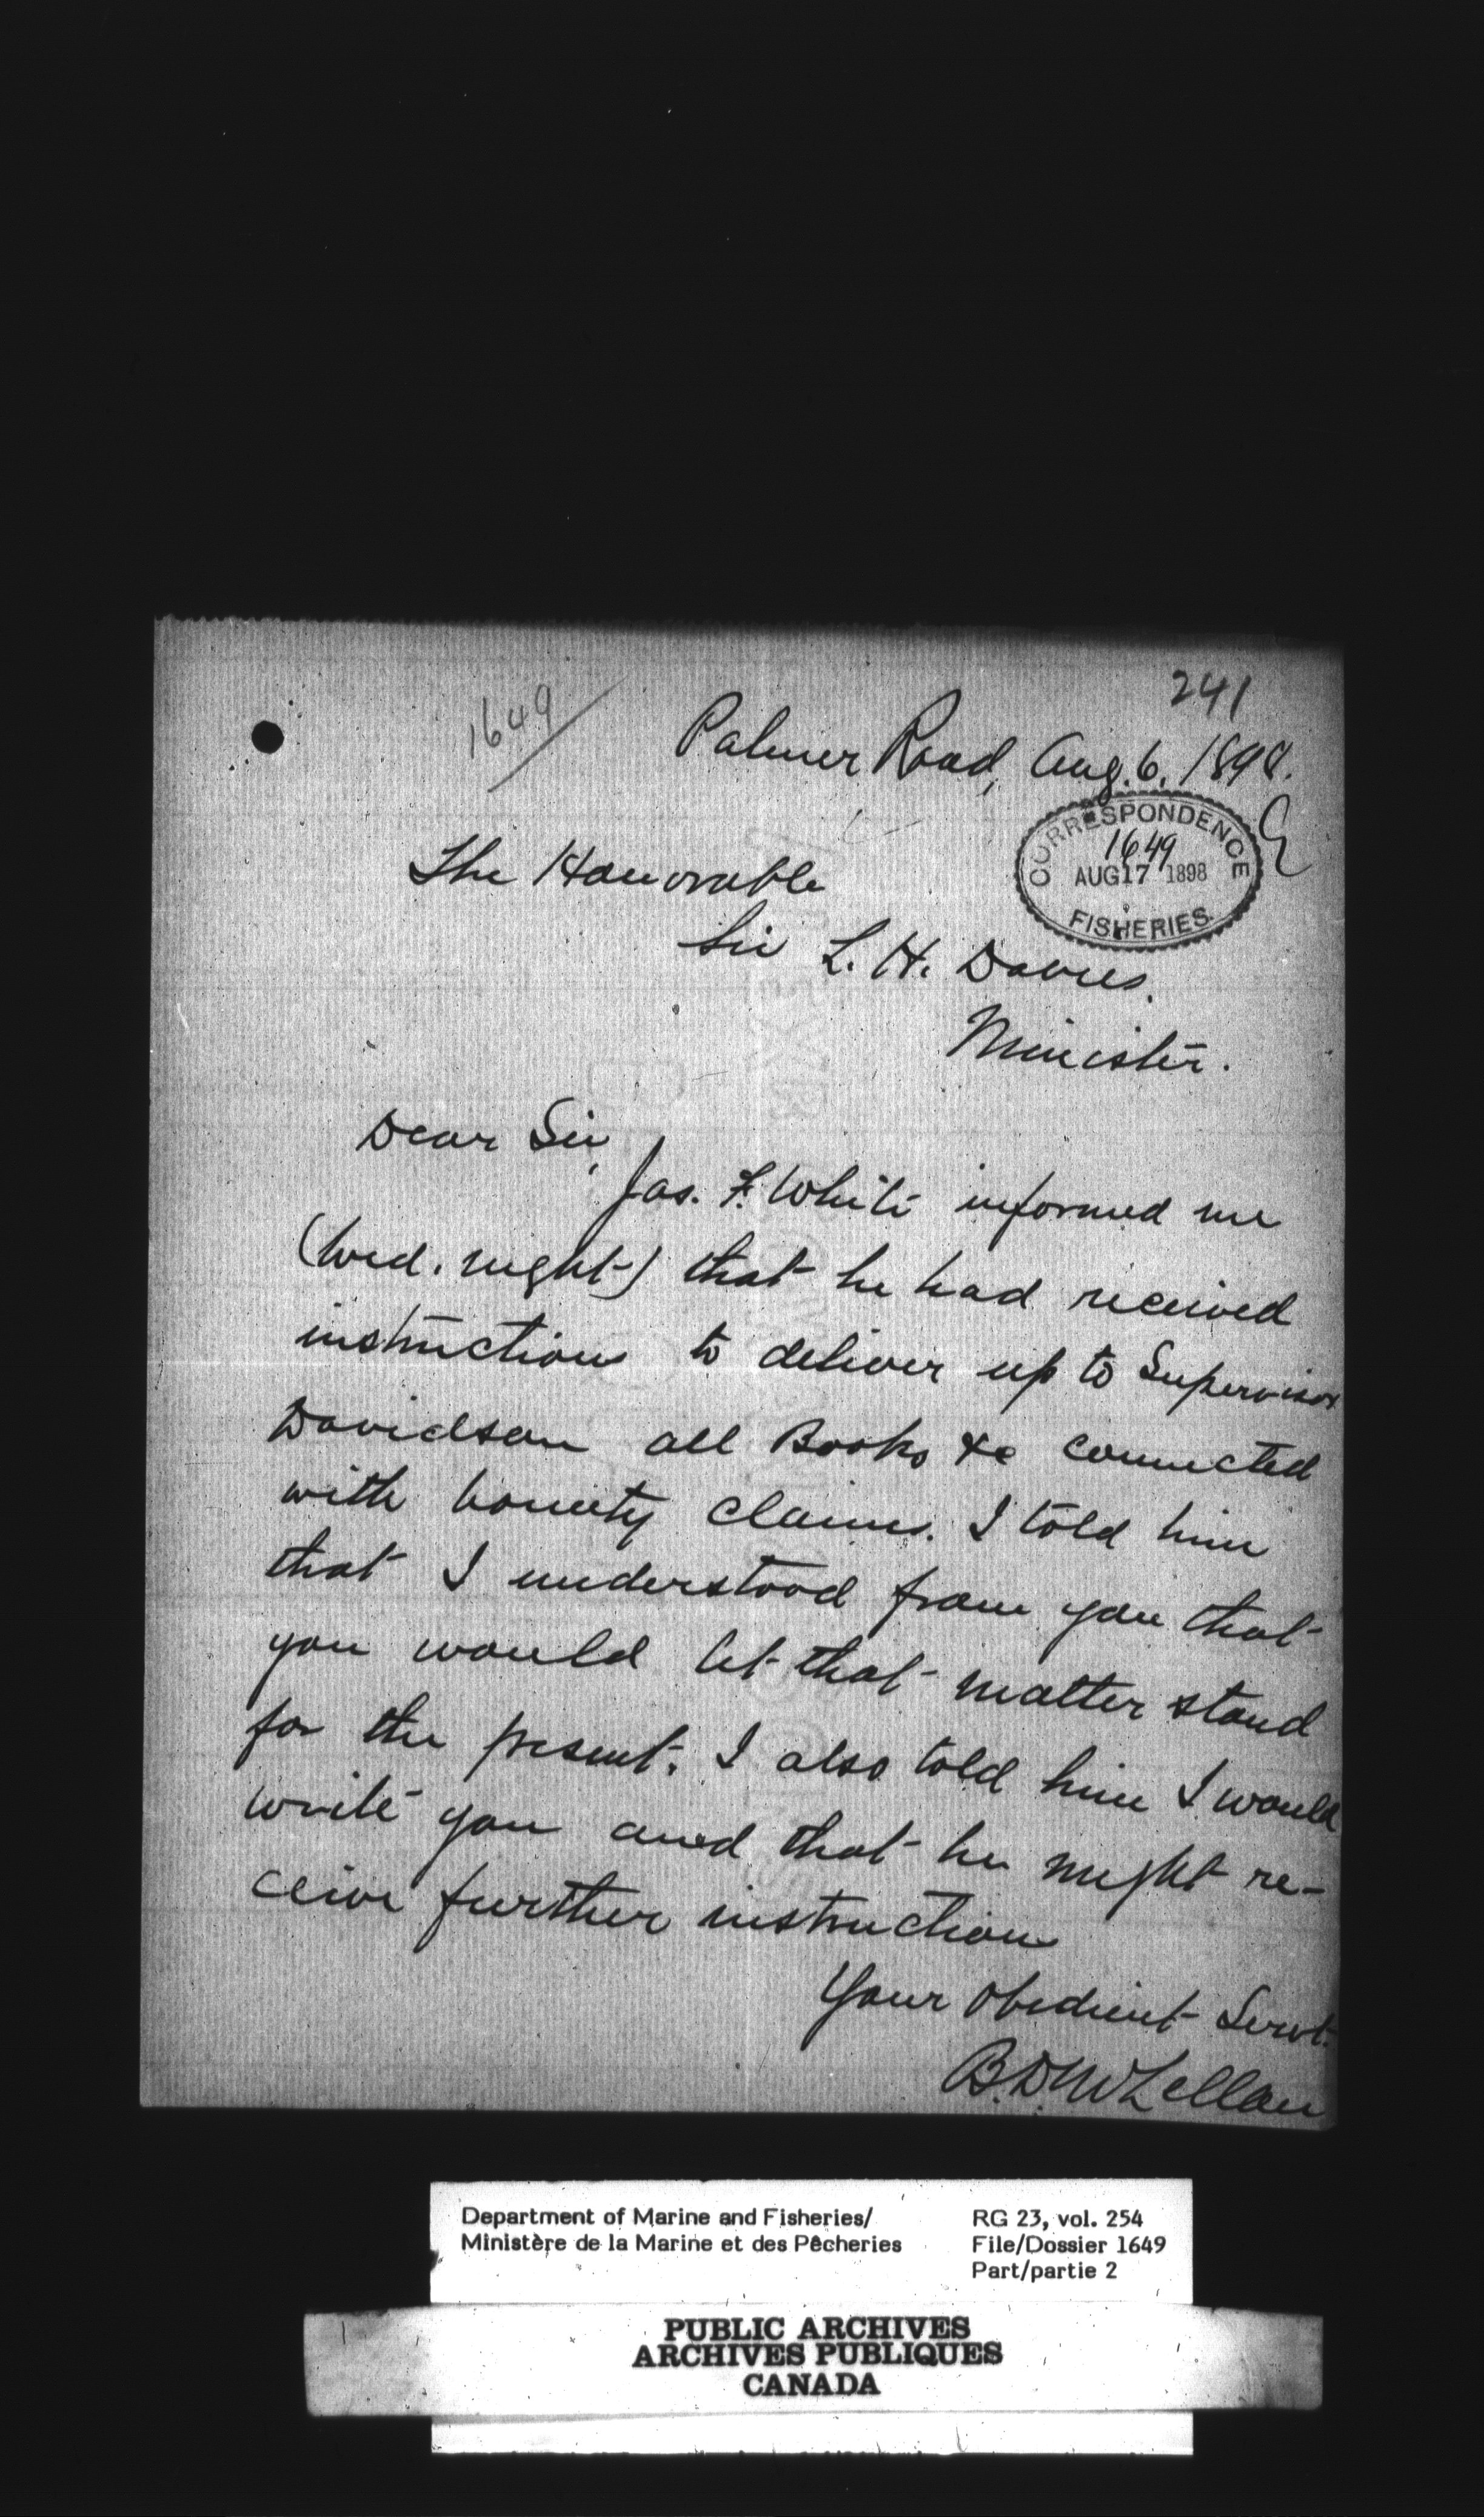 241
1649/
Palmer Road, Aug. 6, 1898.
CORRESPONDENCE
1649
AUG 17 1898
FISHERIES.
The Honorable
Sir L. H. Davies,
Minister.
Dear Sir,
Jas. F. White informed me
(Wed. night) that he had received
instructions to deliver up to Supervisor
Davidson all Books &c connected
with bounty claims. I told him
that I understood from you that
you would let that matter stand
for the present. I also told him I would
write you and that he might re-
ceive further instruction
Your Obedient Servt.
B. D. McLellan
Department of Marine and Fisheries/
Ministère de la Marine et des Pêcheries
RG 23, vol. 254
File/Dossier 1649
Part/partie 2
PUBLIC ARCHIVES
ARCHIVES PUBLIQUES
CANADA